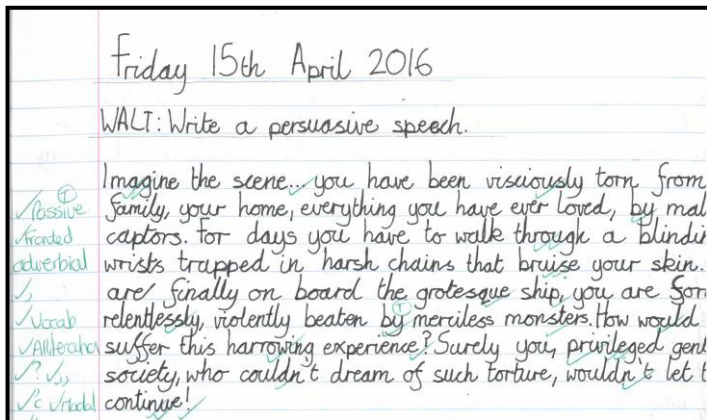 Friday 15th April 2016
WALT: Write a persuasive speech.
Imagine the scene... you have been visciously torn from
✓Passive T family, your home, everything you have ever loved, by mal
✓fronted captors. For days you have to walk through a blindin
adverbial wrists trapped in harsh chains that bruise your skin.
✓, are finally on board the grotesque ship, you are for
✓Vocab relentlessly, violently beaten by T merciless monsters. How would
✓Alliteration suffer this harrowing experience? Surely you, privileged gent
✓? ✓,, society, who couldn't dream of such torture, wouldn't let t
✓c ✓Modal continue!